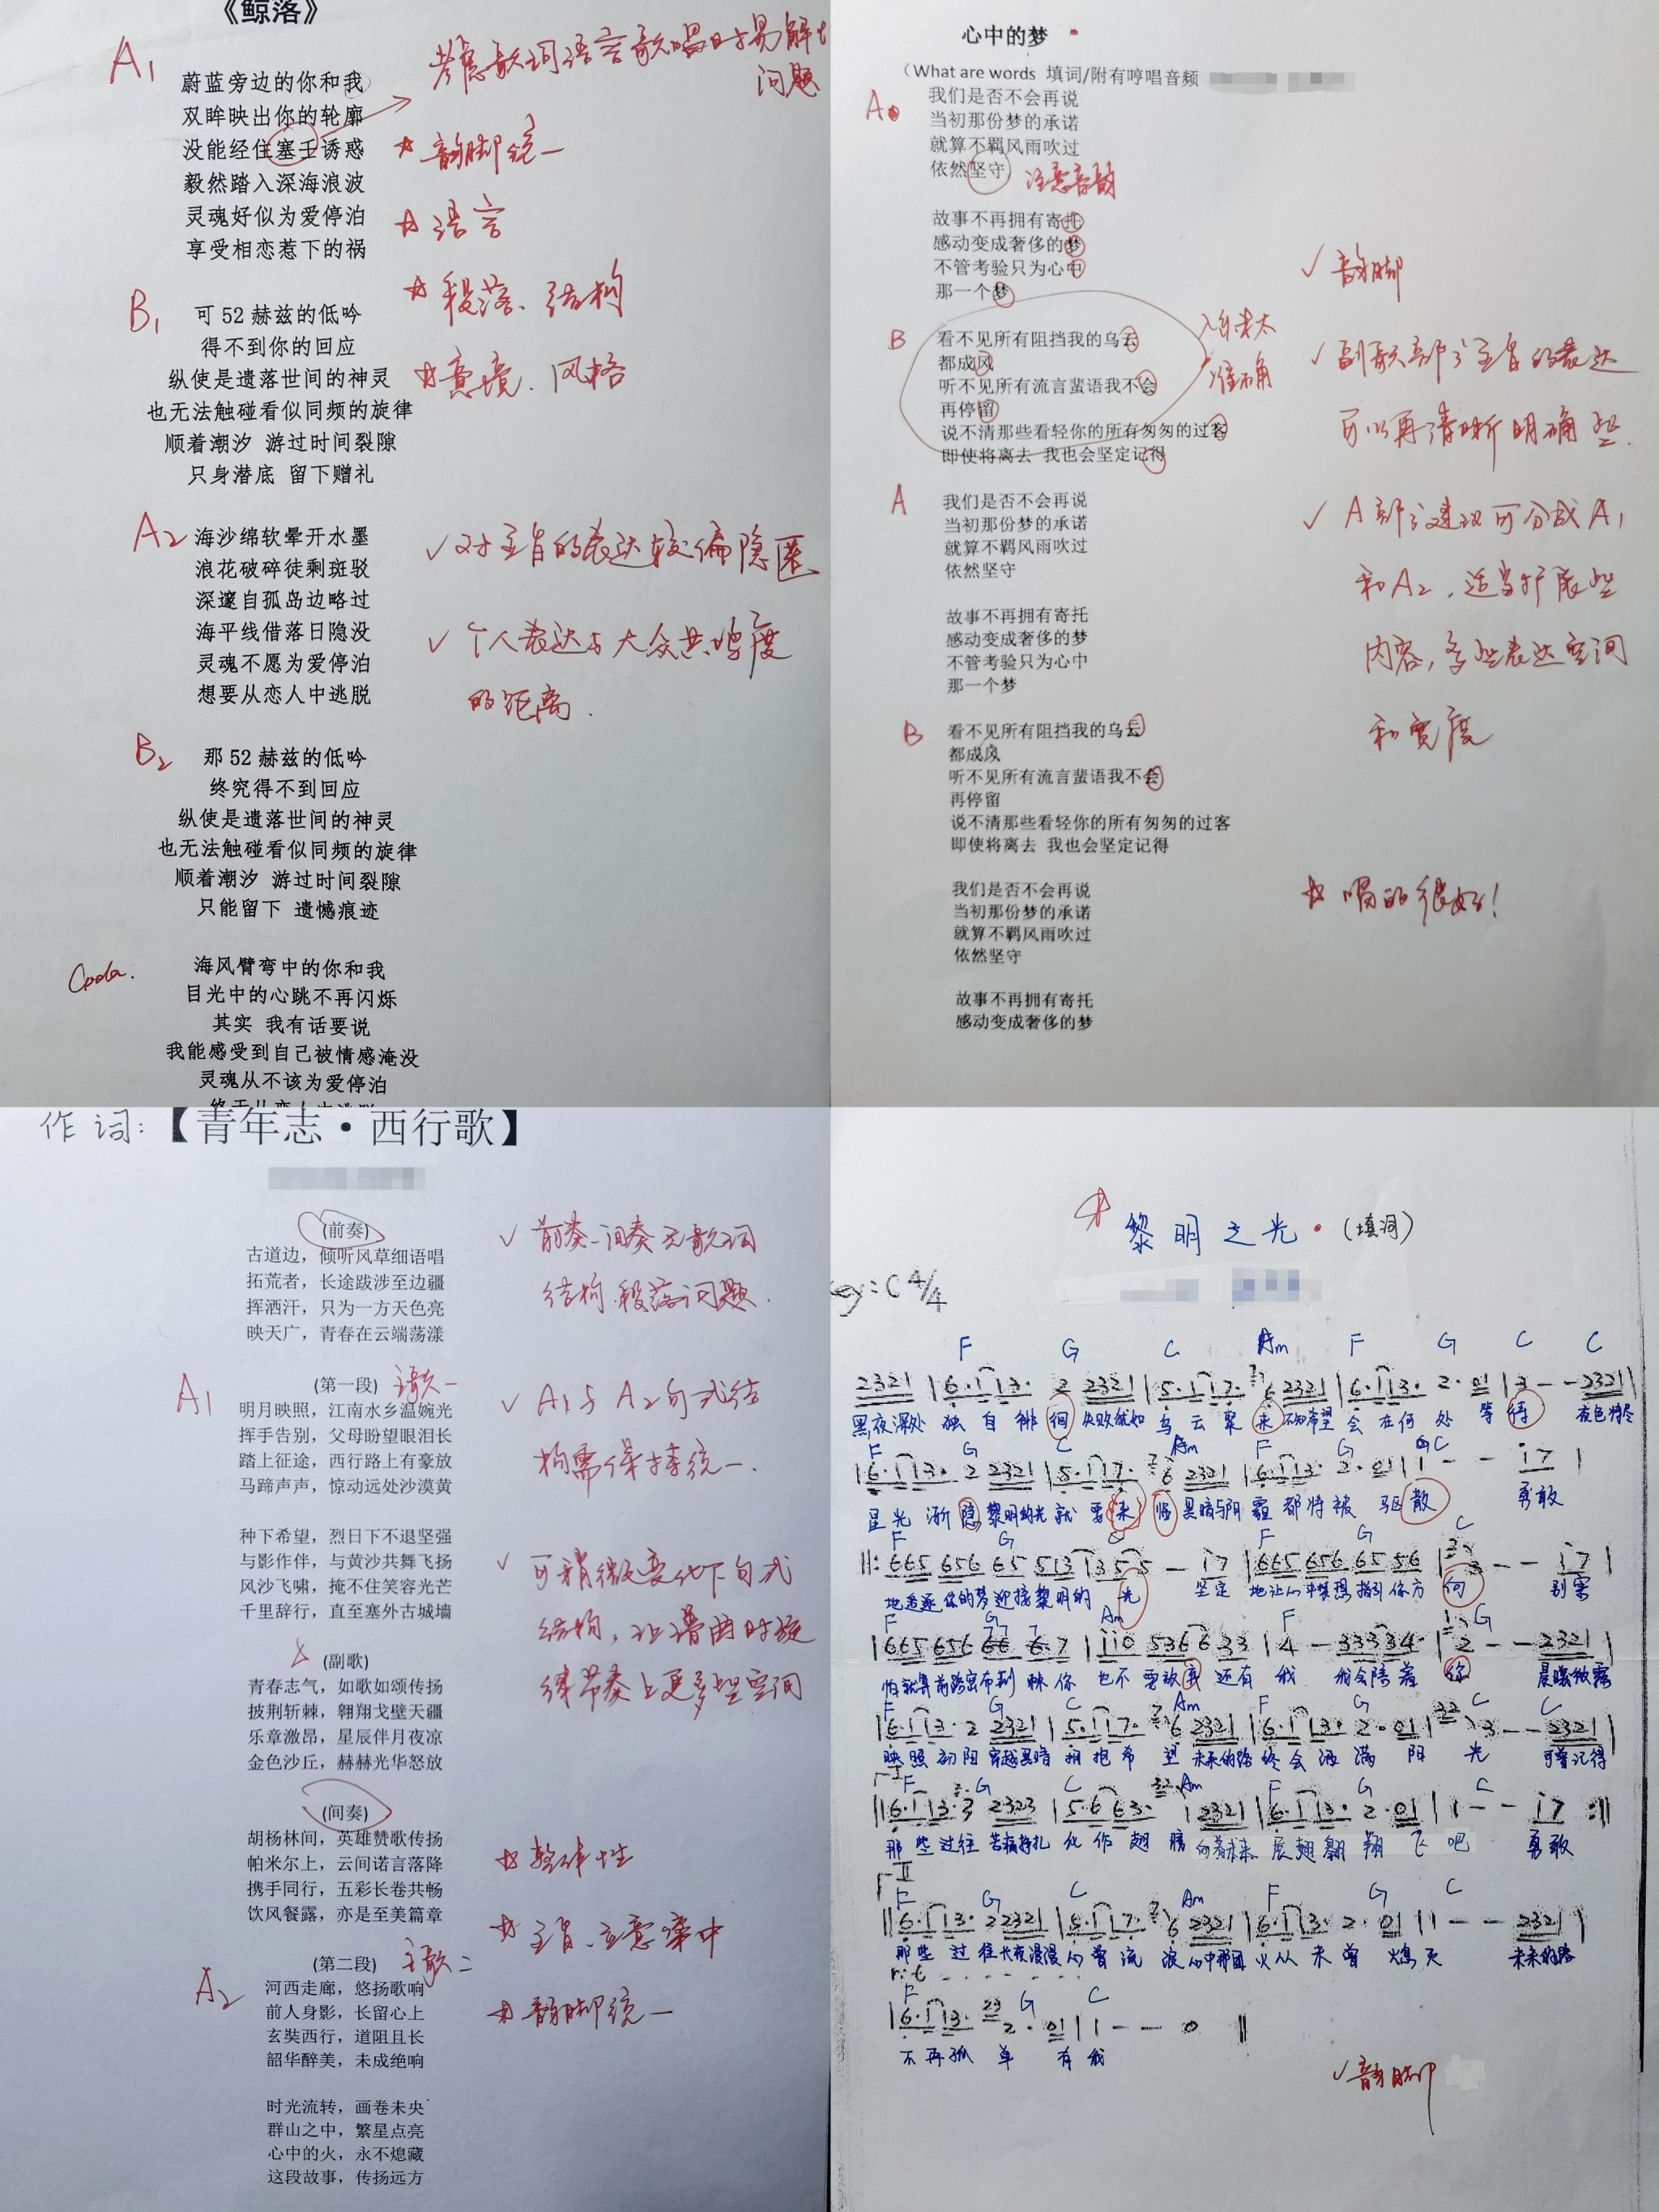 《鲸落》
A1
考虑歌词语言歌唱时易解性
问题
蔚蓝旁边的你和我
双眸映出你的轮廓
没能经住塞壬诱惑
★ 韵脚统一
毅然踏入深海浪波
灵魂好似为爱停泊
★ 语言
享受相恋惹下的祸
★ 段落、结构
B1
可 52 赫兹的低吟
得不到你的回应
纵使是遗落世间的神灵
★ 意境.风格
也无法触碰看似同频的旋律
顺着潮汐 游过时间裂隙
只身潜底 留下赠礼
A2
海沙绵软晕开水墨
✓ 对主旨的表达较偏隐匿
浪花破碎徒剩斑驳
深邃自孤岛边略过
海平线借落日隐没
✓ 个人表达与大众共鸣度
灵魂不愿为爱停泊
想要从恋人中逃脱
的距离.
B2
那 52 赫兹的低吟
终究得不到回应
纵使是遗落世间的神灵
也无法触碰看似同频的旋律
顺着潮汐 游过时间裂隙
只能留下 遗憾痕迹
Coda.
海风臂弯中的你和我
目光中的心跳不再闪烁
其实 我有话要说
我能感受到自己被情感淹没
灵魂从不该为爱停泊
心中的梦
（What are words 填词/附有哼唱音频
A
我们是否不会再说
当初那份梦的承诺
就算不羁风雨吹过
依然坚守
注意音韵
故事不再拥有寄托
感动变成奢侈的梦
不管考验只为心中
那一个梦
✓ 韵脚
B
看不见所有阻挡我的乌云
都成风
听不见所有流言蜚语我不会
再停留
说不清那些看轻你的所有匆匆的过客
即使将离去 我也会坚定记得
准确
✓ 副歌部分主旨的表达
可以再清晰明确些.
A
我们是否不会再说
当初那份梦的承诺
就算不羁风雨吹过
依然坚守
✓ A部分建议可分成A1
和A2，适当扩展些
内容，多些表达空间
和宽度
故事不再拥有寄托
感动变成奢侈的梦
不管考验只为心中
那一个梦
B
看不见所有阻挡我的乌云
都成风
听不见所有流言蜚语我不会
再停留
说不清那些看轻你的所有匆匆的过客
即使将离去 我也会坚定记得
我们是否不会再说
当初那份梦的承诺
就算不羁风雨吹过
依然坚守
★ 唱的很好！
故事不再拥有寄托
感动变成奢侈的梦
作词:【青年志·西行歌】
(前奏)
古道边，倾听风草细语唱
拓荒者，长途跋涉至边疆
挥洒汗，只为一方天色亮
映天广，青春在云端荡漾
✓ 前奏-间奏无歌词
结构.段落问题.
A1
(第一段) 主歌一
明月映照，江南水乡温婉光
挥手告别，父母盼望眼泪长
踏上征途，西行路上有豪放
马蹄声声，惊动远处沙漠黄
✓ A1与A2句式结
构需保持统一.
种下希望，烈日下不退坚强
与影作伴，与黄沙共舞飞扬
风沙飞啸，掩不住笑容光芒
千里辞行，直至塞外古城墙
✓ 可稍微变化下句式
结构，让谱曲时旋
律节奏上更多些空间
(副歌)
青春志气，如歌如颂传扬
披荆斩棘，翱翔戈壁天疆
乐章激昂，星辰伴月夜凉
金色沙丘，赫赫光华怒放
(间奏)
胡杨林间，英雄赞歌传扬
帕米尔上，云间诺言落降
携手同行，五彩长卷共畅
饮风餐露，亦是至美篇章
★ 整体性
★ 主旨、立意集中
★ 韵脚统一
(第二段) 主歌二
A2
河西走廊，悠扬歌响
前人身影，长留心上
玄奘西行，道阻且长
韶华醉美，未成绝响
时光流转，画卷未央
群山之中，繁星点亮
心中的火，永不熄藏
这段故事，传扬远方
黎明之光·(填词)
key=C 4/4
F G C Am F G C C
黑夜深处 独自徘徊 失败就如 乌云聚来 不知希望 会在何处 等待 夜色将尽
F G C Am F G C
星光渐隐 黎明的光就要来临 黑暗与阴霾都将被驱散 勇敢
地追逐你的梦迎接黎明的光 坚定地让心中梦想指引你方向 别害
怕就算前路密布荆棘你也不要放弃 还有我 我会陪着你 晨曦微露
映照初阳 穿越黑暗 拥抱希望 未来的路终会洒满阳光 可曾记得
那些过往 苦痛挣扎 化作翅膀 向着未来 展翅翱翔 飞吧 勇敢
那些过往 长夜漫漫 心曾流浪 心中那团火从未曾熄灭 未来的路
rit - - - -
F G C
不再孤单 有我
✓ 韵脚